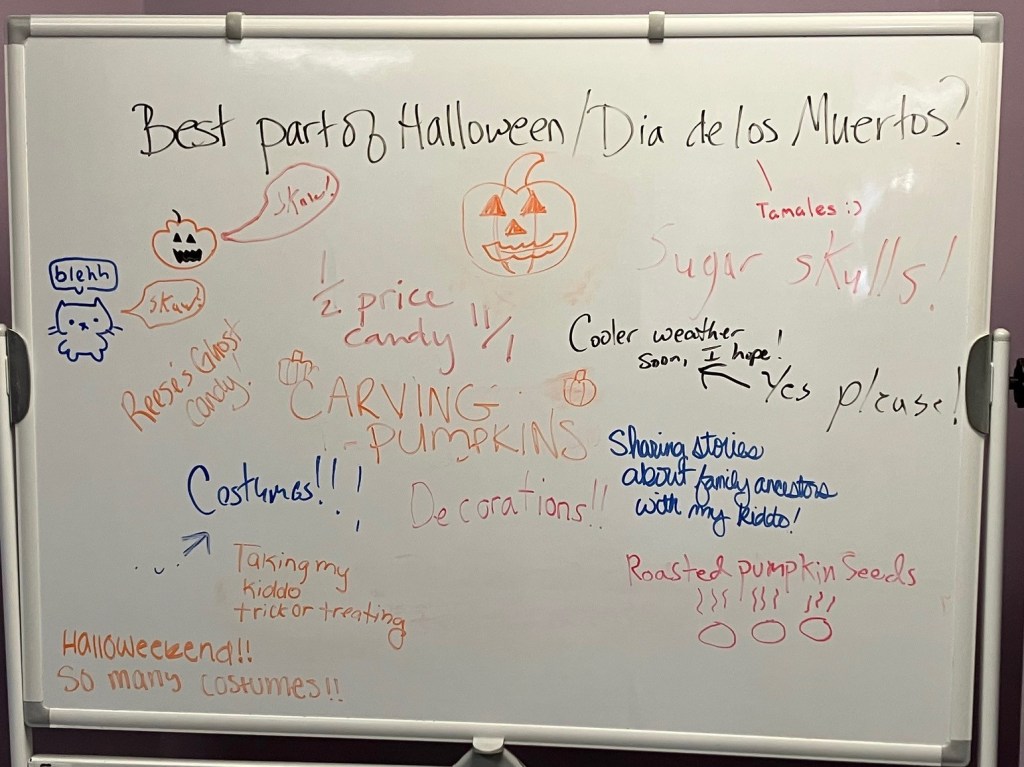 Best part of Halloween/Dia de los Muertos?
Tamales :)
Sugar skulls!
blehh
1/2 price
candy 11/1
Cooler weather
soon, I hope!
Yes please!
Reese's Ghost
candy!
CARVING
PUMPKINS
Costumes!!!
Decorations!!
Sharing stories
about family ancestors
with my kiddo!
Taking my
kiddo
trick or treating
Roasted pumpkin Seeds
Halloweekend!!
So many costumes!!